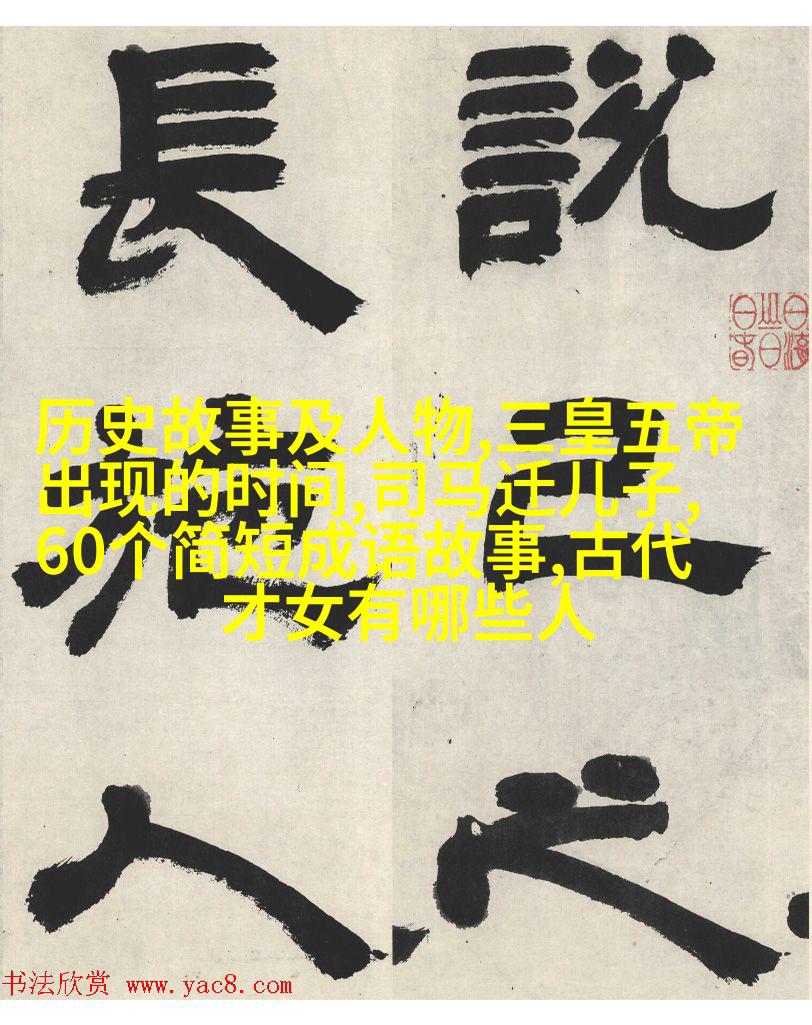 說己之
長施人
历史故事及人物,三皇五帝
出现的时间,司马迁儿子,
60个简短成语故事,古代
才女有哪些人
书法欣赏 www.yac8.com